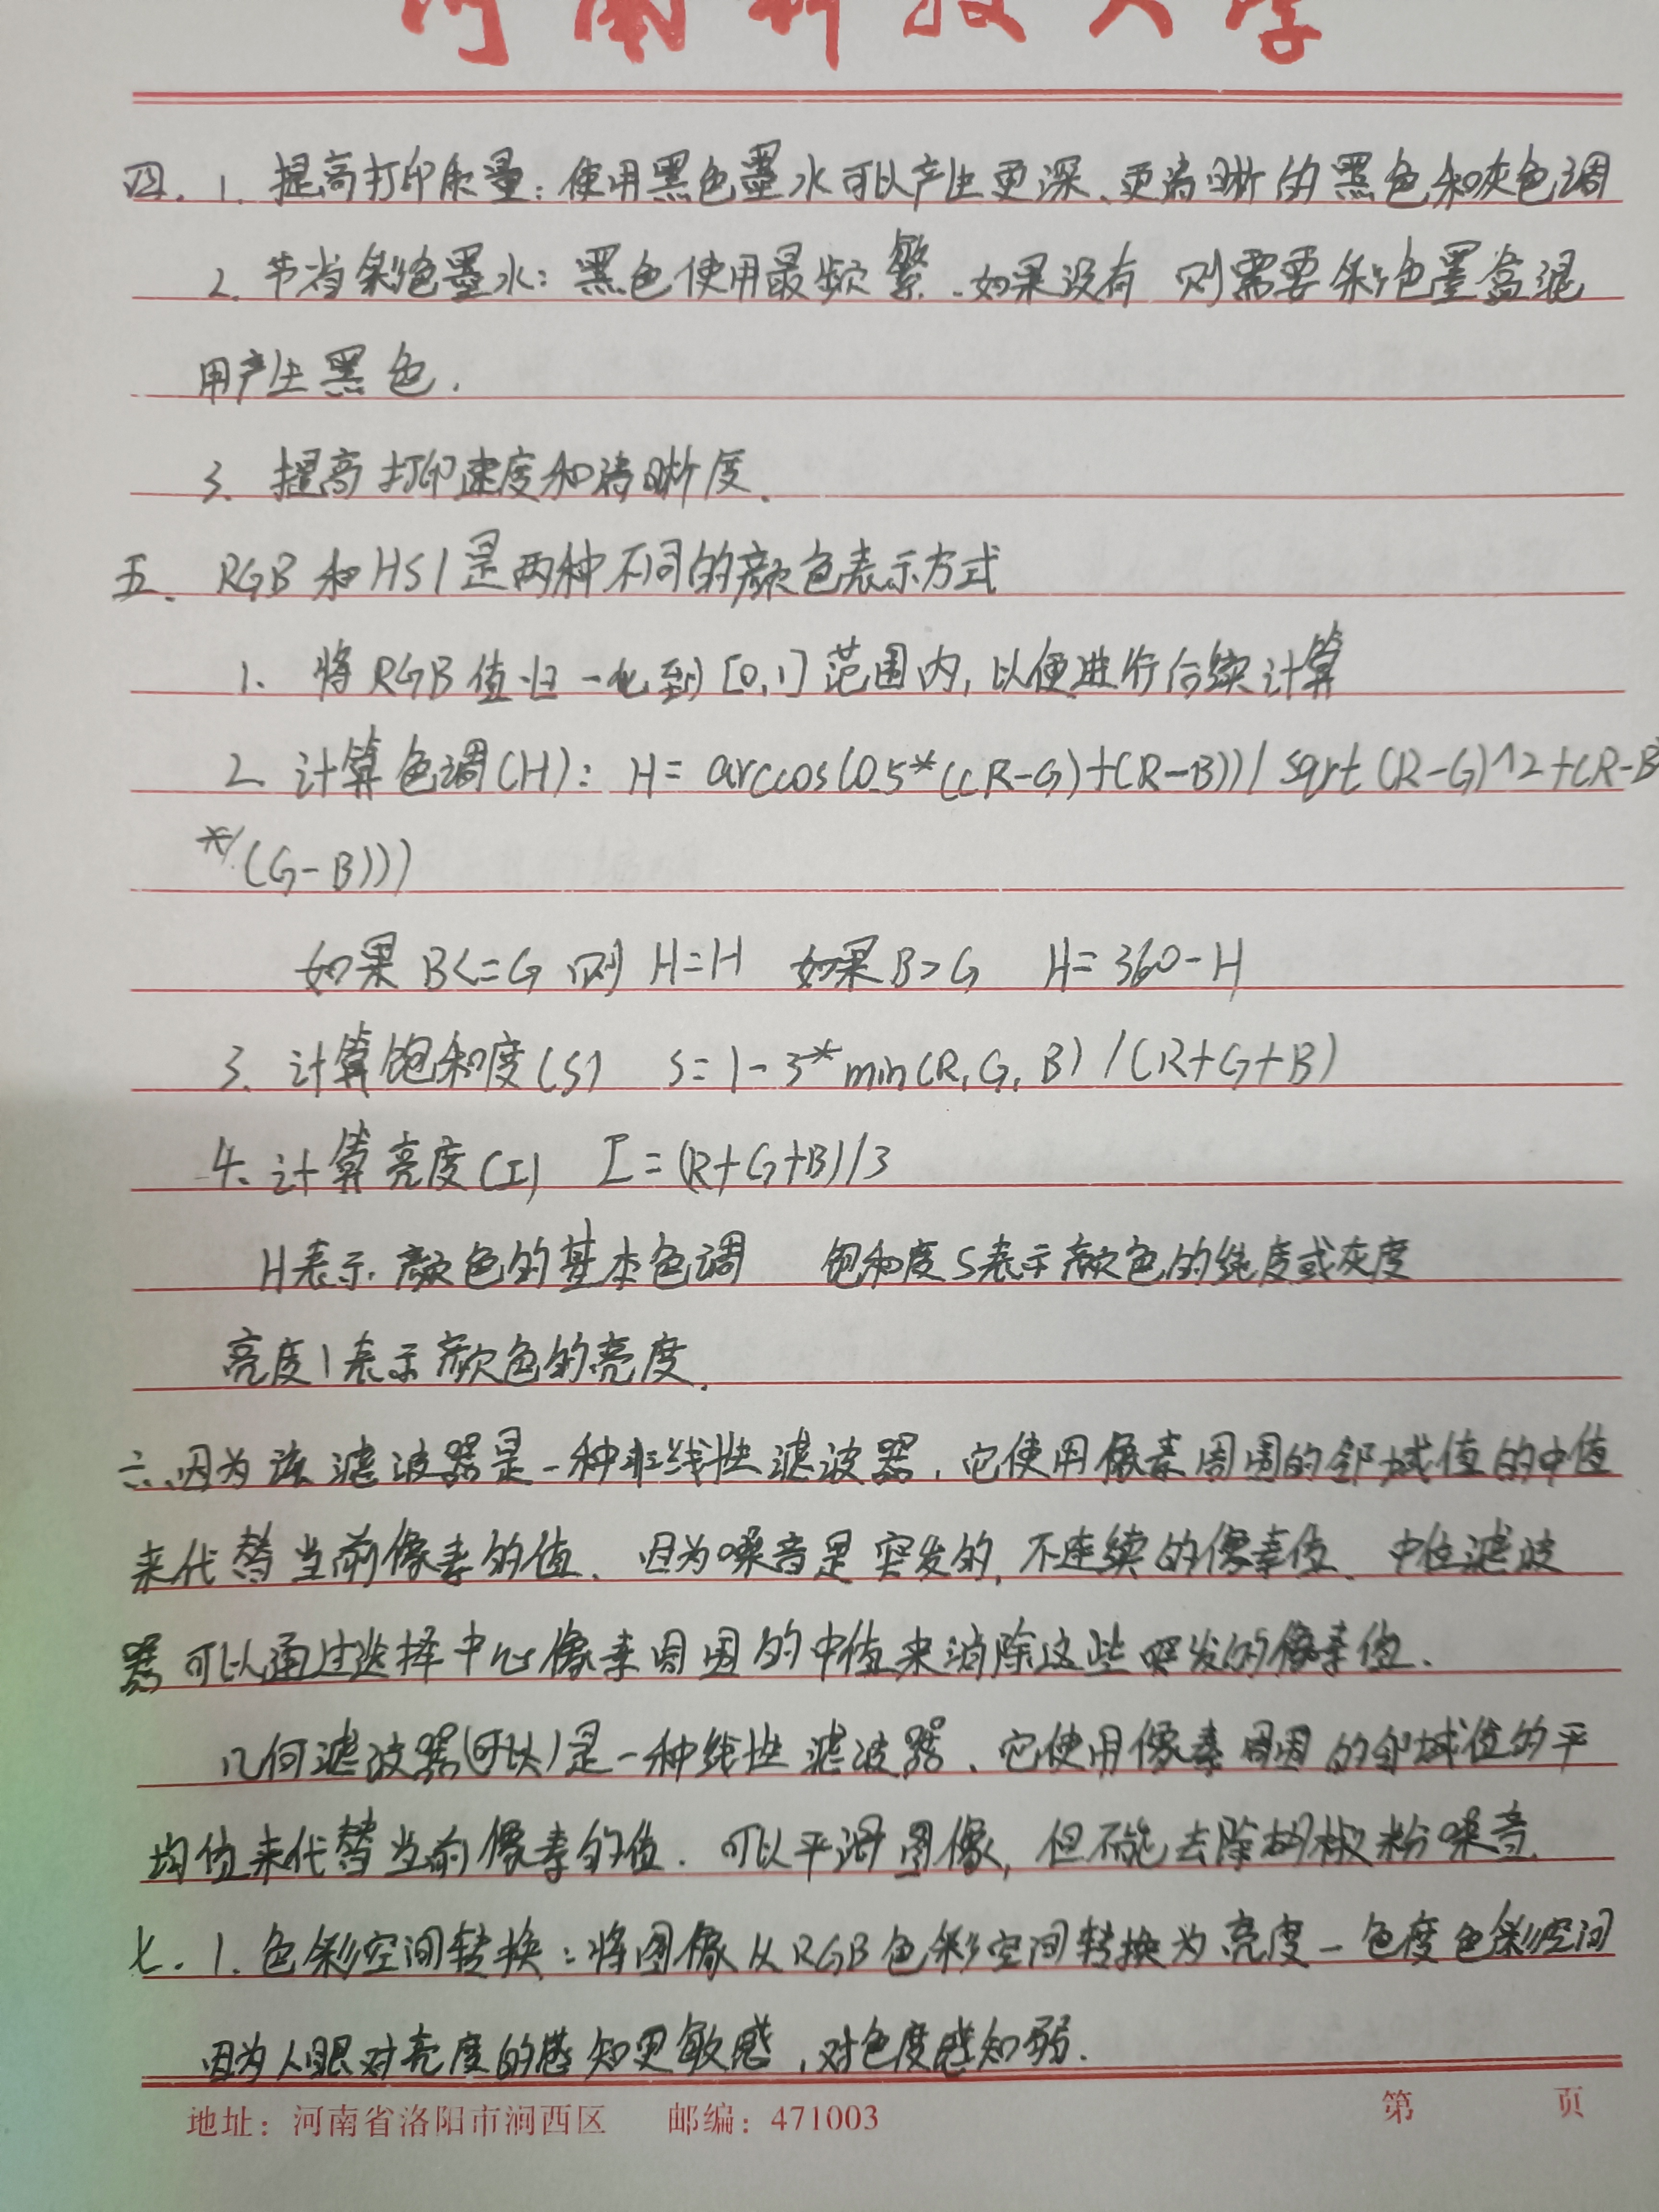 河南科技大学
四. 1. 提高打印质量: 使用黑色墨水可以产生更深、更清晰的黑色和灰色调
2. 节省彩色墨水: 黑色使用最频繁. 如果没有 则需要彩色墨盒混
用产生黑色.
3. 提高打印速度和清晰度.
五. RGB 和 HSI 是两种不同的颜色表示方式
1. 将 RGB 值归一化到 [0,1] 范围内, 以便进行后续计算
2. 计算色调(H): H = arccos(0.5*((R-G)+(R-B))/sqrt(R-G)^2+(R-B)
*(G-B)))
如果 B<=G 则 H=H 如果 B>G H=360-H
3. 计算饱和度(S) S=1-3*min(R,G,B)/(R+G+B)
4. 计算亮度(I) I=(R+G+B)/3
H表示颜色的基本色调 饱和度S表示颜色的纯度或灰度
亮度I表示颜色的亮度.
六.因为该滤波器是一种非线性滤波器, 它使用像素周围的邻域值的中值
来代替当前像素的值. 因为噪音是突发的, 不连续的像素值. 中值滤波
器可以通过选择中心像素周围的中值来消除这些突发的像素值.
几何滤波器(可以)是一种线性滤波器. 它使用像素周围的邻域值的平
均值来代替当前像素的值. 可以平滑图像, 但不能去除胡椒粉噪音
七. 1. 色彩空间转换: 将图像从RGB色彩空间转换为亮度-色度色彩空间
因为人眼对亮度的感知更敏感, 对色度感知弱.
地址: 河南省洛阳市涧西区 邮编: 471003 第 页